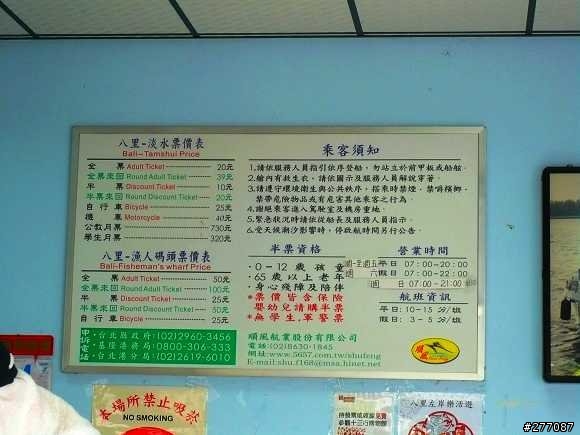 八里-淡水票價表
Bali-Tamshui Price
全 票 Adult Ticket 20元
全票來回 Round Adult Ticket 39元
半 票 Discount Ticket 10元
半票來回 Round Discount Ticket 20元
自行車 Bicycle 25元
機 車 Motorcycle 40元
公教月票 730元
學生月票 320元
八里-漁人碼頭票價表
Bali-Fisheman's wharf Price
全 票 Adult Ticket 50元
全票來回 Round Adult Ticket 100元
半 票 Discount Ticket 25元
半票來回 Round Discount Ticket 50元
自行車 Bicycle 25元
申訴電話
·台北縣政府:(02)2960-3456
·基隆港務局:0800-306-333
·台北港分局:(02)2619-6010
乘客須知
1.請依服務人員指引依序登船，勿站立於前甲板或船舷。
2.艙內有救生衣，請依圖示及服務人員解說穿著。
3.請遵守環境衛生與公共秩序，搭乘時禁煙、禁嚼檳榔，
禁帶危險物品或有危害其他乘客之行為。
4.謝絕乘客進入駕駛室及機房重地。
5.緊急狀況時請依從船長及服務人員指示。
6.受天候潮汐影響時，停啟航時間另行公告。
半票資格
·0-12歲孩童
·65歲以上老年
·身心殘障及陪伴
*票價皆含保險
嬰幼兒請購半票
*無學生,軍警票
營業時間
平日 07:00-20:00
假日 07:00-22:00
週日 07:00-21:00
航班資訊
平日:10-15分/班
假日:3-5分/班
順風航業股份有限公司
電話:(02)8630-1845
網址:www.5657.com.tw/shufeng
順風
本場所禁止吸菸
NO SMOKING
八里左岸樂活遊
#277087